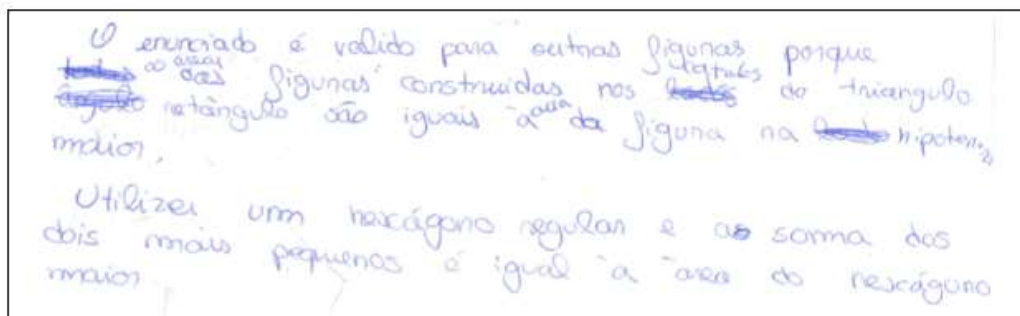 O enunciado é valido para outras figuras porque
as áreas das figuras construidas nos catetos do triangulo
retângulo são iguais à area da figura na hipotenusa
maior.
Utilizei um hexágono regular e a soma dos
dois mais pequenos é igual à área do hexágono
maior